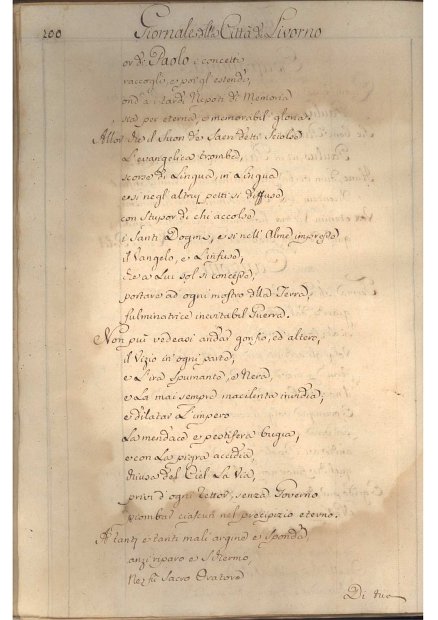 200
Giornale della Città di Livorno
or di Paolo i concetti
raccoglie, e poi gl'estende,
ond'a i tardi Nipoti di Memoria
sia per eterna, e memorabil gloria.
Allor che il suon de Sacri detti sciolse
L'evangelica tromba,
scorse di Lingua, in Lingua
e si negl'altrui petti si diffuse,
con stupor di chi accolse
i Santi Dogmi, e si nell'Alme impresso
il Vangelo, e L'infuse,
che a Lui sol si concesse,
portare ad ogni mostro della Terra,
fulminatrice inevitabil Guerra.
Non più vedeasi andar gonfio, ed altero,
il Vizio in ogni parte,
e L'ira spumante, e Nera,
e La mai sempre macilente invidia,
e dilatar L'impero
La mendace e pestifera bugia,
e con La pigra accidia,
chiusa del Ciel La Via,
privi d'ogni Rettor, senza Governo
piombar ciascun nel precipizio eterno.
A tanti e tanti mali argine e sponda,
anzi riparo e schermo,
Ne fu Sacro Oratore
Di tue